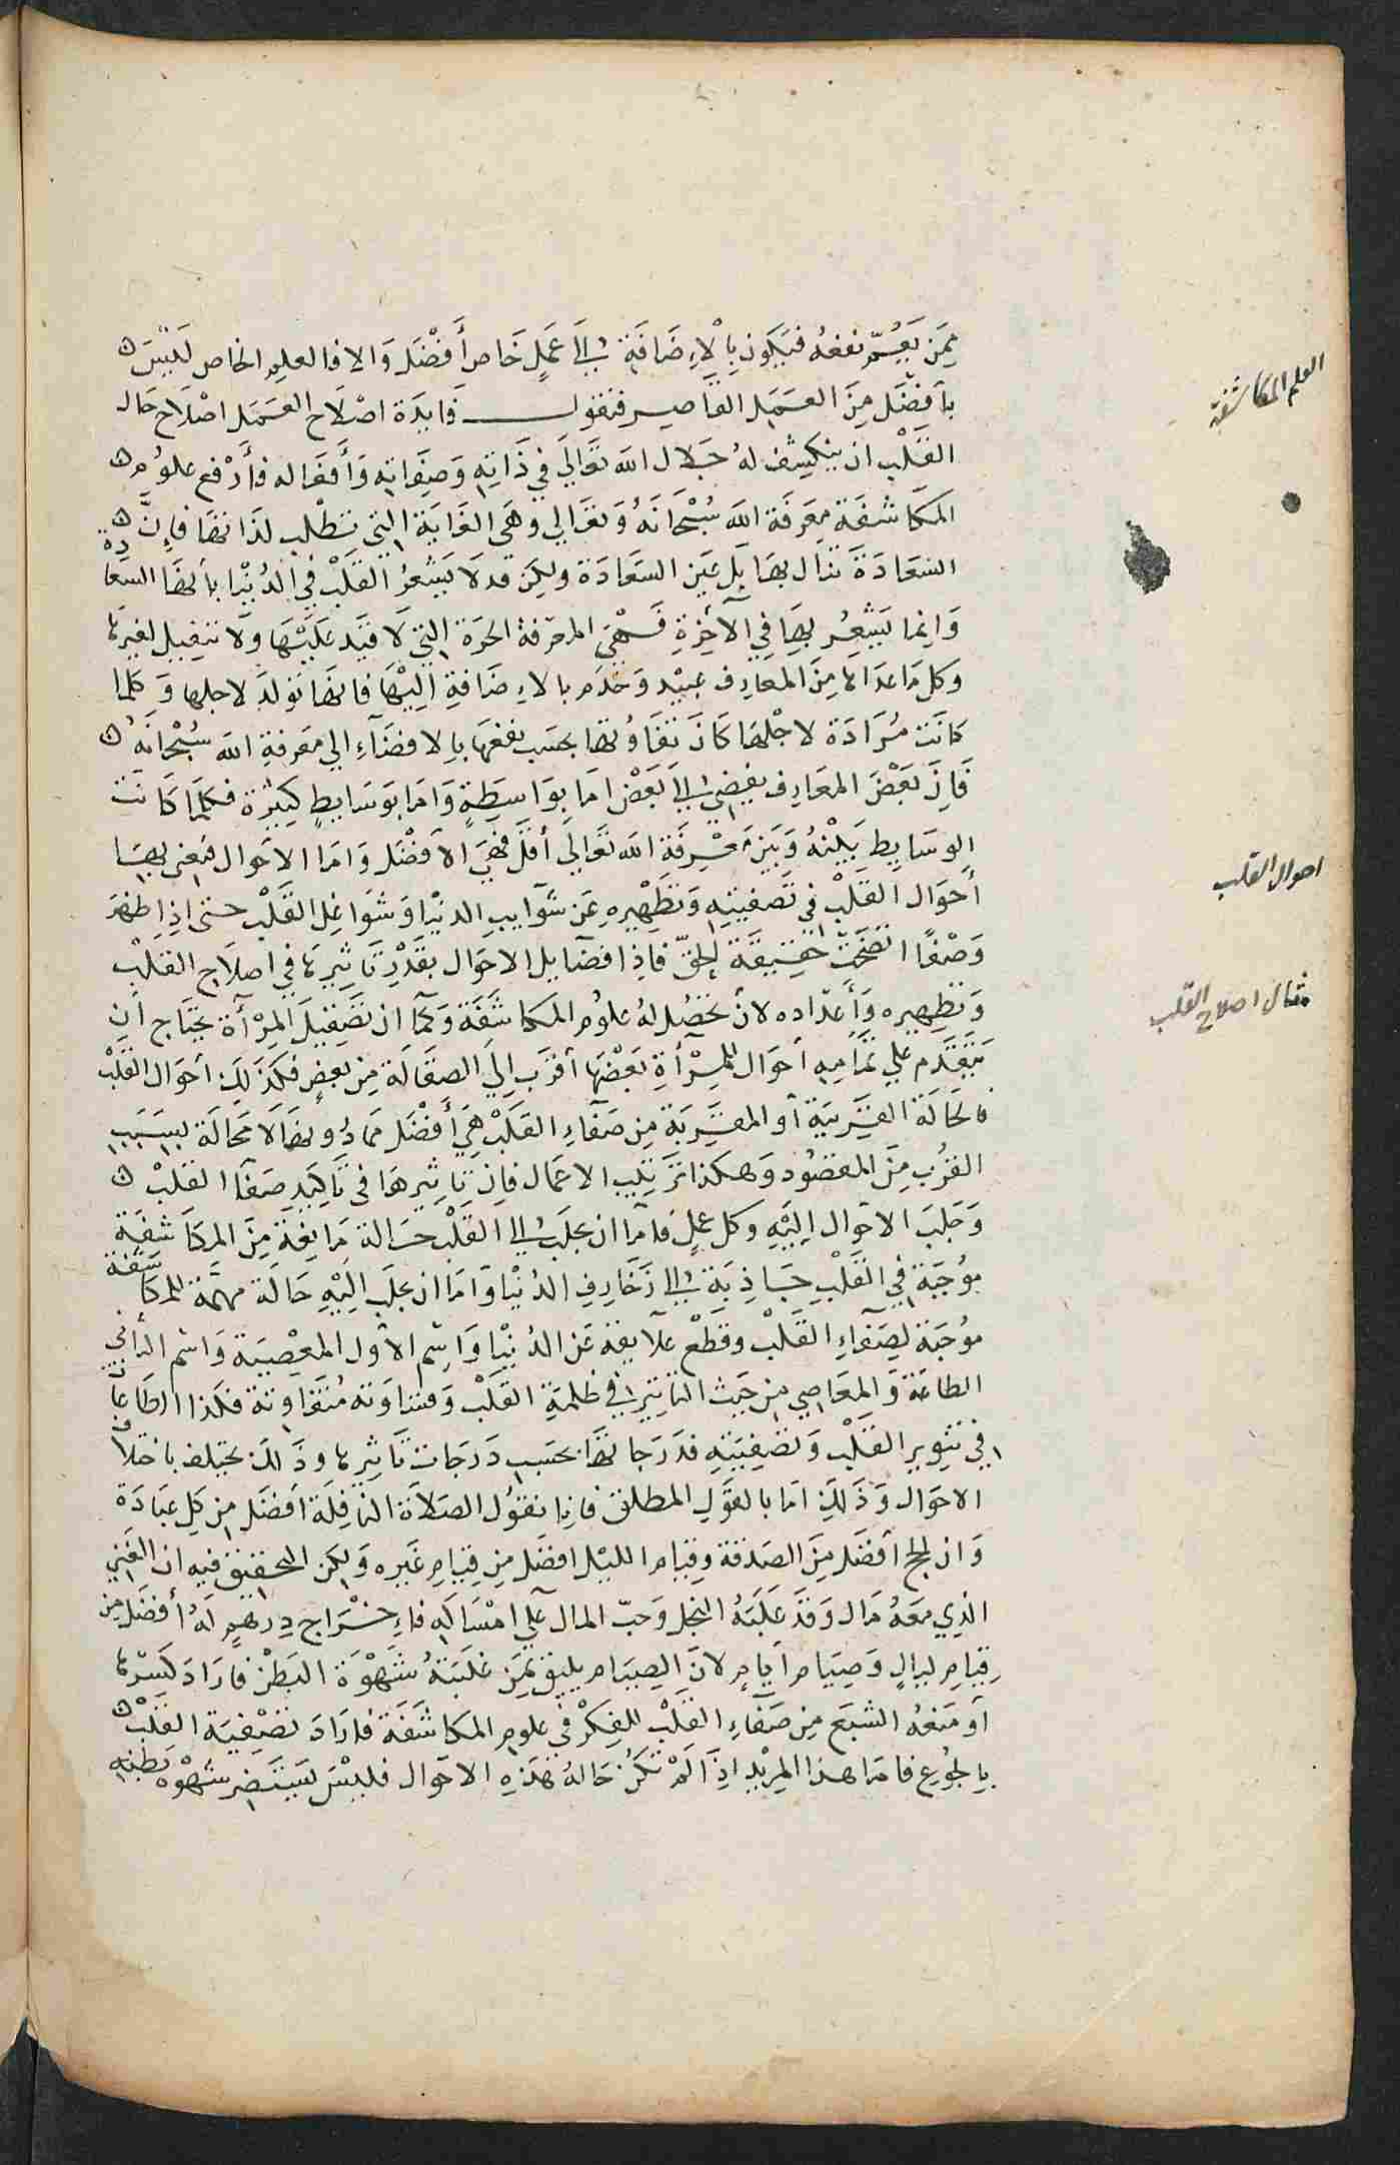 ممن يَعُمّ نفعهُ فيكون بالإضافة إلى عَمَلٍ خاص أفْضَل وَالا فالعلم الخاص لَيْسَ
بأفضَل مِنَ العَمَل القاصِر فنقول فَايدَة اصْلَاح العَمَل اصْلَاح حَال
القَلْب ان ينكشف لهُ جَلال الله تعَالى في ذَاتِهِ وَصِفَاتِه وَأفعَاله فأرْفع علوُم
المكاشفة مَعرفَة الله سُبْحَانَهُ وَتعَالي وَهَى الغَايَة التي تطْلب لذَاتهَا فإنَّ
السَعَادَةَ تنال بهَا بَل عَين السَعَادَة ولكِن قد لَا يَشعُر القَلْب في الدُنيْا بأنهَا السَعادة
وَانما يَشعُر بهَا في الآخِرَةِ فَهْىَ المعرفة الحرَة التي لَا قَيْد عَليْهَا وَلَا تتقيد لغيرها
وَكل مَا عدَاها مِنَ المعَارِف عبيْد وَخَدَم بالاضَافةِ إليْهَا فانهَا تولدَ لاجلها وَكلما
كانَت مُرَادَة لاجْلهَا كَانَ تفَاوُتهَا بحسَب نفعَهَا بالافضَاءِ الي مَعرفةِ الله سُبْحَانهُ
فَانَ بَعْضَ المعَارِف يفضي إلى بَعْض امَا بوَاسِطَةٍ وَامَا بوَسَايطٍ كثِيْرة فكلمَا كَانَت
الوسَايط بَيْنهُ وَبَيْن مَعْرفَة الله تعَالي أقَلّ فهيَ الأفضَل وَامَا الاحَوال فنعني بهَا
أحوَال القَلْب في تَصفِيَتِهِ وَتَطْهِيرِهِ عَن شَوَايبِ الدنيْا وَشوَاغِل القَلْب حتى اذِا طهُر
وَصْفًا اتضحَتْ حَقِيقَة الحقّ فاذِا فضَايل الاحوَال بقَدْرِ تَاثِيرِهَا في اصلَاحِ القَلْب
وَتطهِيره وَاعدَاده لان تحصُل لهُ علوُم المكاشفَة وَكمَا ان تصْقِيلَ المِرْأة يحتَاج أن
يَتَقَدَّم على تمامِهِ أحوَال للمِرْأةِ بَعْضهَا أقرَب الِى الصقَالَة مِن بعضٍ فكذَلِكَ أحوَال القَلْبْ
فالحَالَة القَرِيبَة أو المقرِّبَة مِن صَفَاءِ القَلْب هِيَ أفْضَل ممَا دُونهَا لَا مَحالَة بِسَبَبِ
القرْب مِنَ المقصُود وَهكذا تَرتِيب الاعمَال فانِ تاثِيرهَا في تَاكِيدِ صَفَا القَلبْ
وَجَلبَ الاحوَال إليْهِ وكل عملٍ فامَا ان يجلب إلى القَلْب حَالة مَانِعَة مِنَ المكاشفَة
موُجبَة في القَلْبِ جَاذِبَة إلى زَخَارِفِ الدُنيْا وَامَا ان يجلب إليْهِ حَالَة مهيَّئَة للمكاشفة
موُجبَة لِصَفَاءِ القَلْب وقَطْع علَايقه عَن الدُنيْا وَاسْم الأول المعْصِيَة وَاسْم الثاني
الطاعَة وَالمعَاصي مِن حَيث التاثير في ظلمَةِ القَلْب وَقسَاوَته مُتَفاوتة فكذا الطَاعات
في تنوير القَلْب وَتصْفِيَتِهِ فدَرَجَاتهَا بحَسَب دَرَجَات تَاثِيرها وذَلِكَ يختلف باختلاف
الاحوَال وَذَلِكَ امَا بالقوَلِ المطلق فانِا نقوُل الصَلَاة النافِلَة أفضَل مِن كل عبَادَة
وَان الحج أفضَل مِنَ الصَدقة وَقيَام الليْل افضَل مِن قِيَامِ غَيره وَلكِن التحقيق فيهِ ان الغني
الذي مَعهُ مَال وَقَد غَلبَهُ البخل وَحبّ المال عَلى امْسَاكهِ فاخْرَاج دِرهمٍ لَهُ أفضَل مِن
قِيَامِ ليالٍ وَصِيَام أيامٍ لانَ الصِيَام يليق بمَن غلبَتهُ شَهْوَة البَطْن فارَادَ كَسْرهَا
أو مَنعهُ الشبَع مِن صَفاءِ القَلْب للفِكر في علوم المكاشفَة فارَادَ تصْفِيَة القَلْبْ
بالجُوع فامَا هذا المرِيْد اذَا لَمْ تكُن حَالهُ هَذِهِ الاحوَال فليْسَ يستضر بشهْوة بَطنه
العلم المكاشفة
احوال القلب
مثال اصلاح القلب